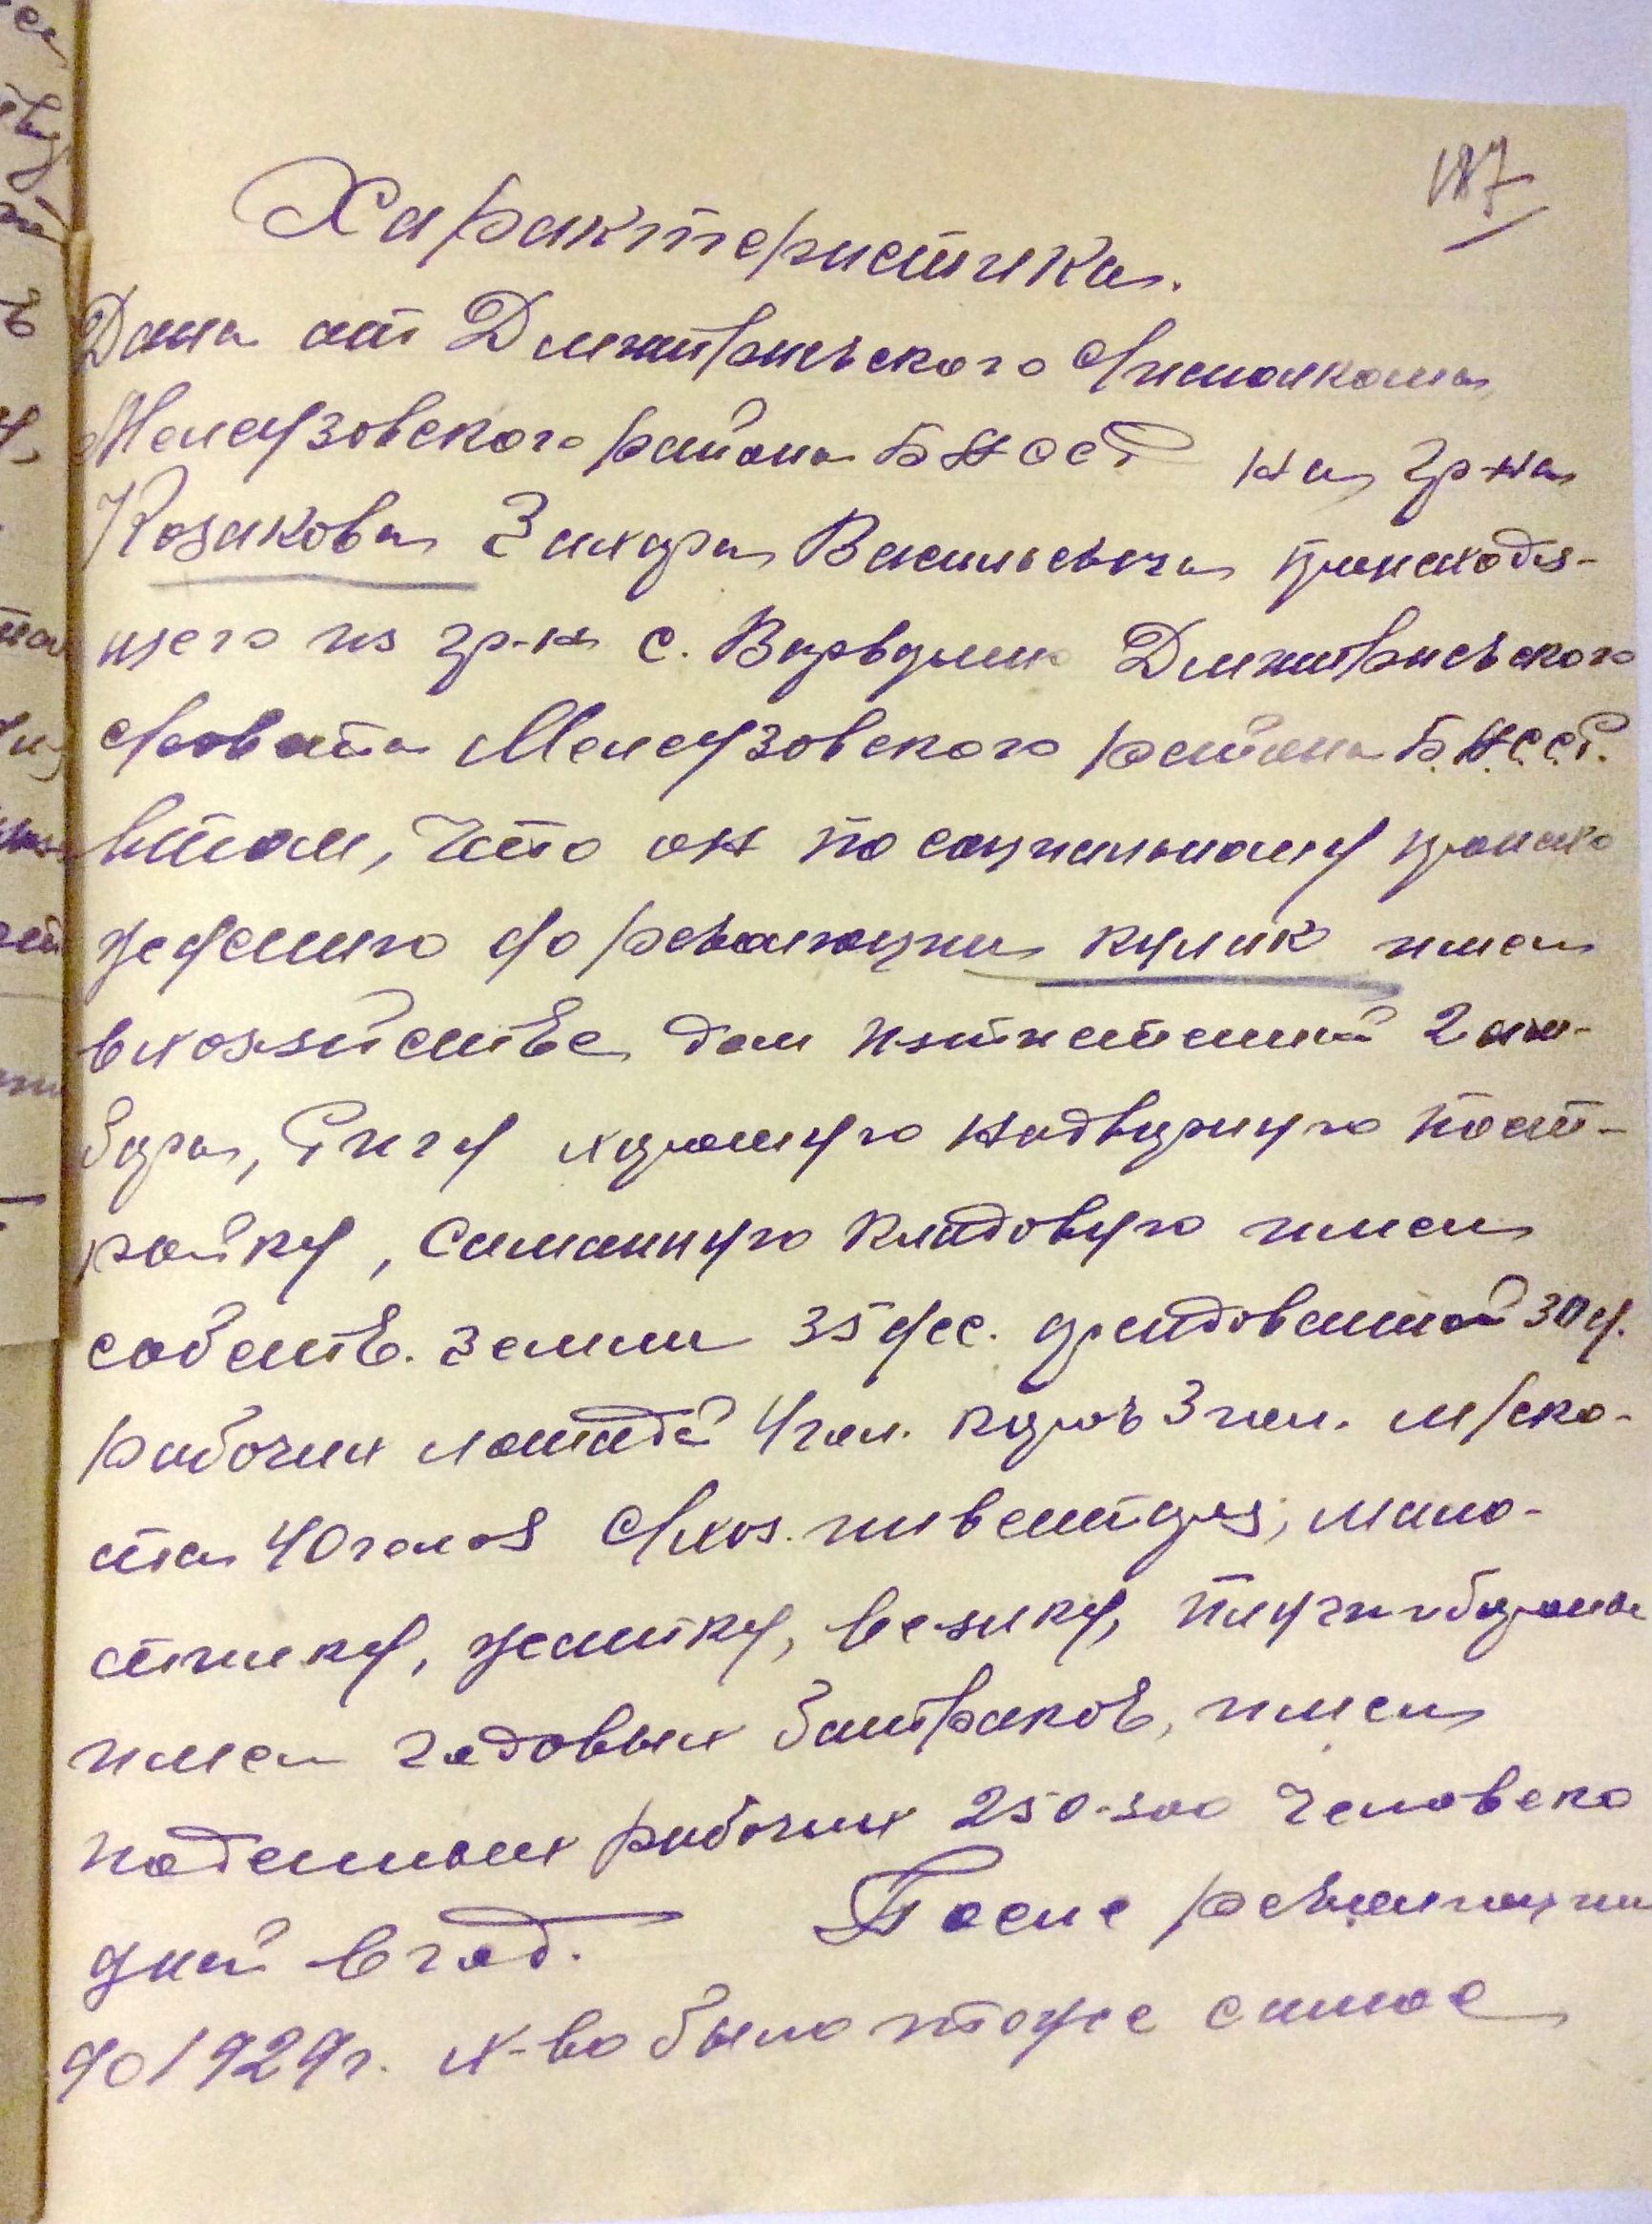 187
Характеристика.
Дана от Дмитриевского с/исполкома
Мелеузовского района БАССР на гр-на
Козакова Захара Васильевича происходя-
щего из гр-н с. Варварино Дмитриевского
с/совета Мелеузовского района Б.А.С.С.Р.
втом, что он по социальному происхо
ждению до революции кулак имел
вхозяйстве дом пятистенный 2 ам-
бара, Ригу хорошую надворную пост-
ройку, саманную кладовую имел
собств. земли 35 дес. арендованной 30 д.
рабочих лошадей 4 гол. коров 3 гол. м/ско-
та 40 голов с/хоз. инвентаря; моло-
тилку, жатку, веялку, плуги бороны
имел годовых батраков, имел
поденных рабочих 250-300 человеко
дней в год. После революции
до 1929 г. х-во было тоже самое